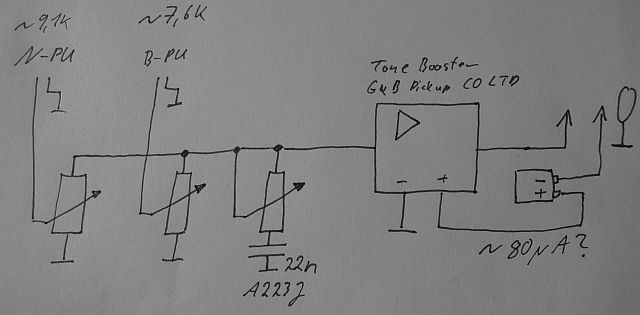 ~9,1k
N-PU
~7,6K
B-PU
Tone Booster
G&B Pickup CO LTD
- +
-
+
~80µA?
22n
A223J